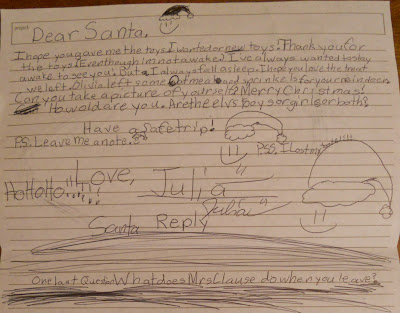 Dear Santa.
I hope you gave me the toys I wanted or new toys. Thank you for
the toys. Even though im not awake. I've always wanted to stay
awake to see you. But I always fall asleep. I hope you love the treat
we left. Olivia left some Oatmeal and sprinkels for your reindeer.
Can you take a picture of yourself? Merry Christmas!
How old are you. Are the elvs boys or girls or both?
Have a safe trip!
PS. Leave me a note.
PSS. I lost my
HoHoHo!!!!!
Love,
Julia
Julia
Santa Reply
One last Question What does Mrs Clause do when you leave?